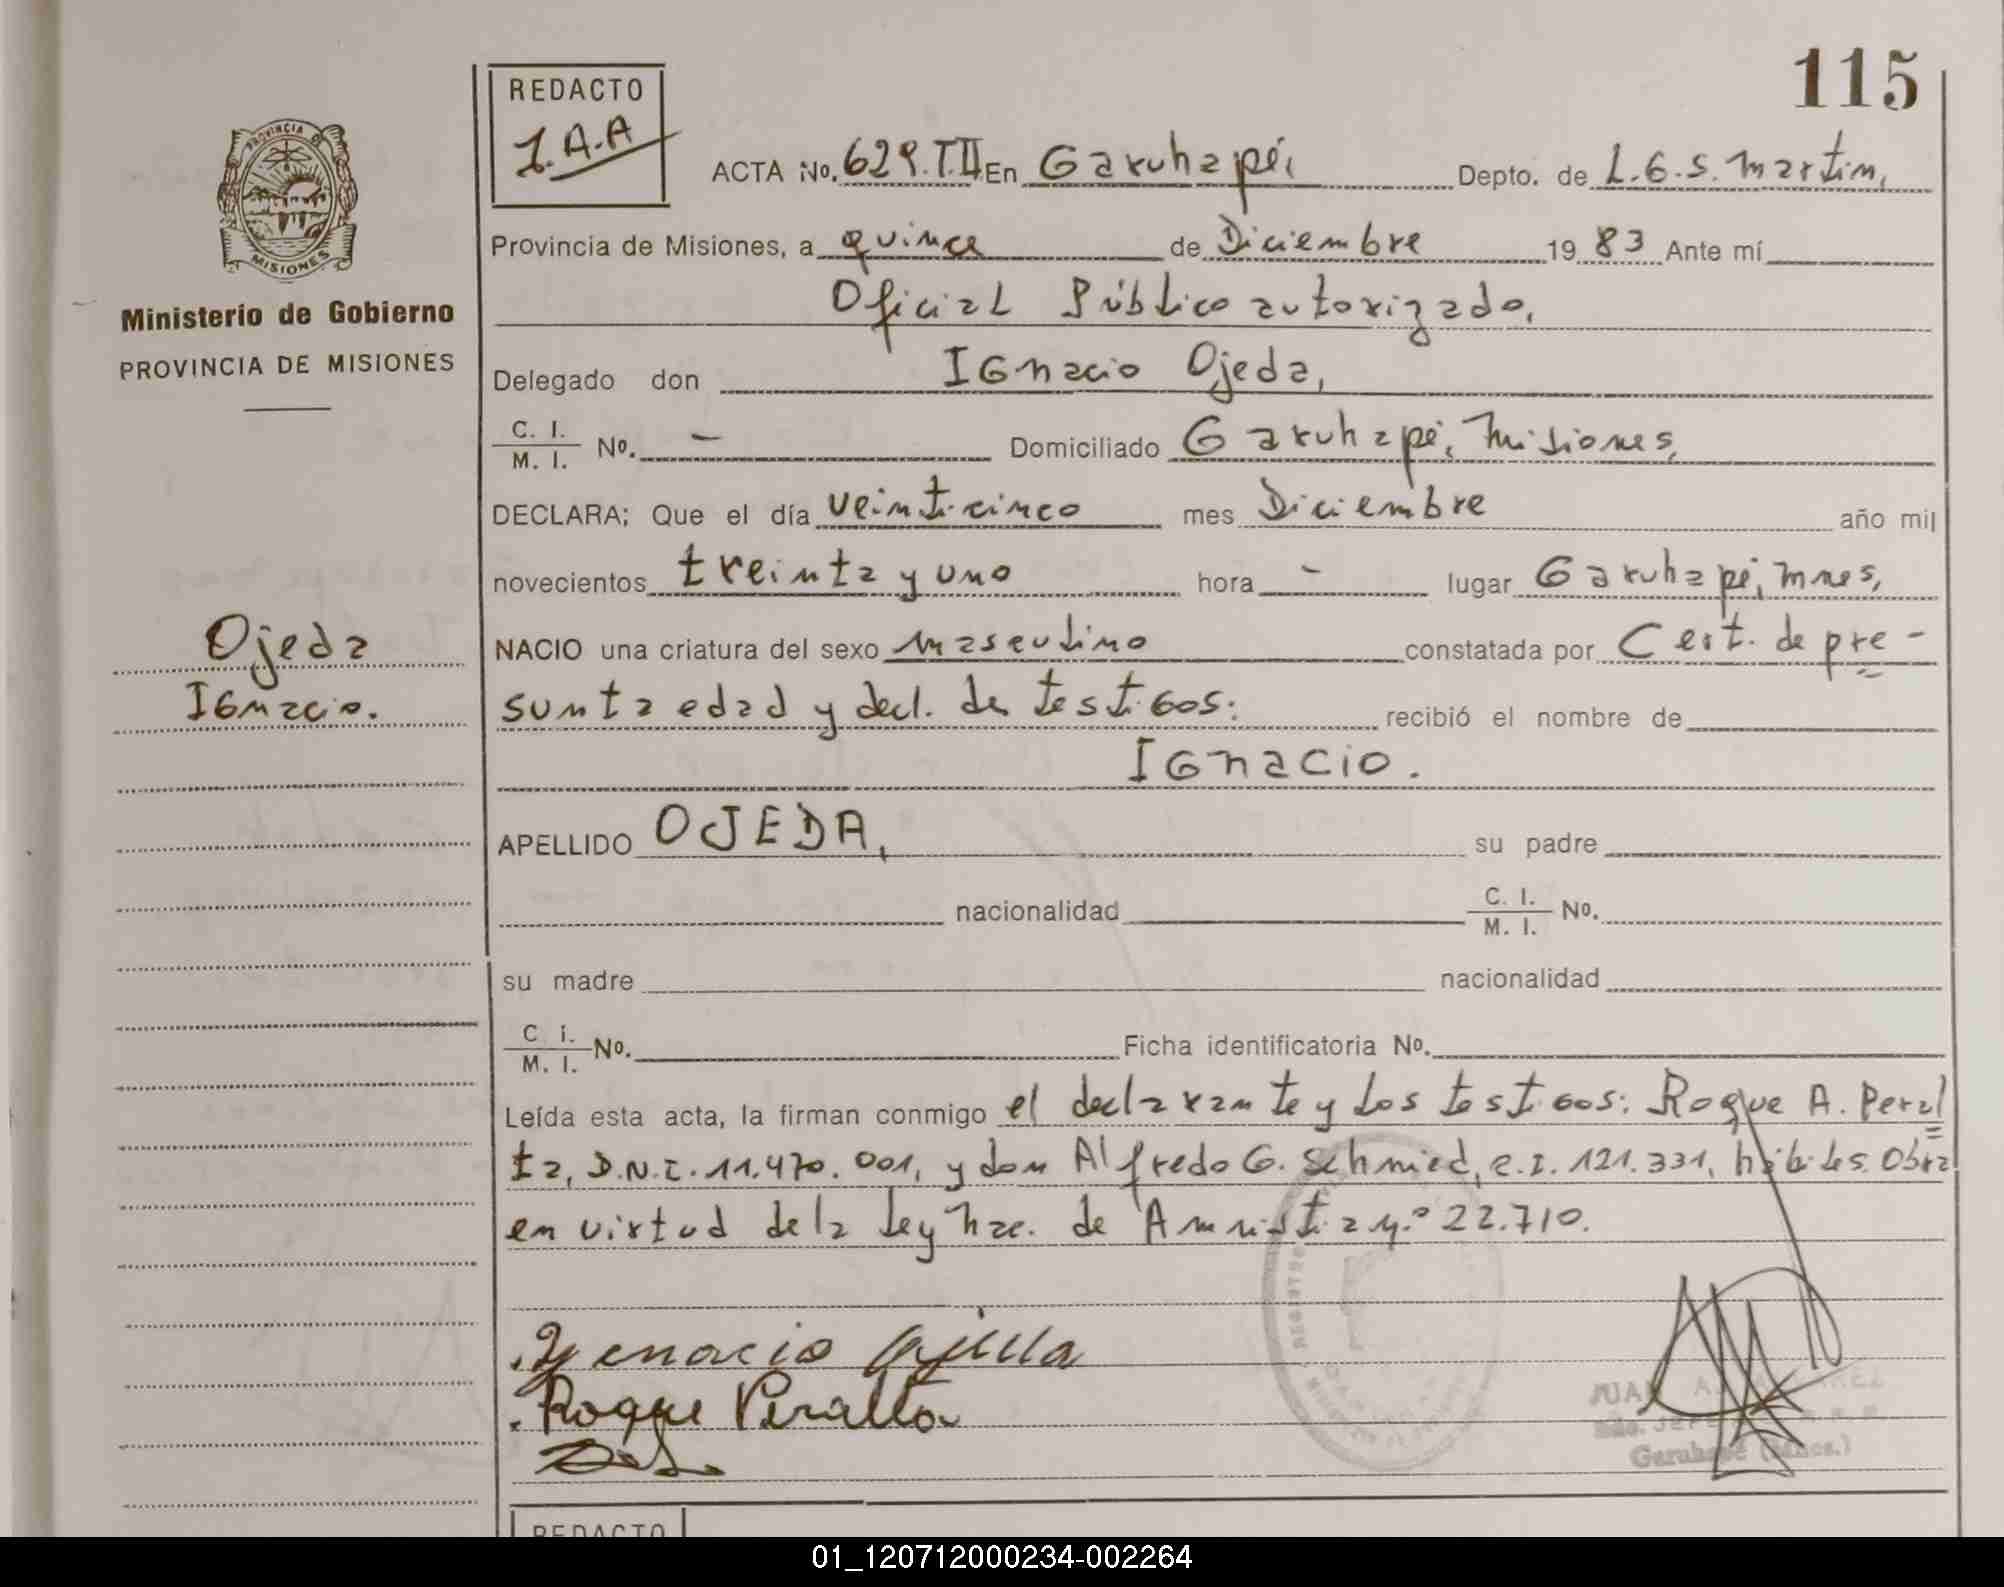 115
REDACTO
1.A.A
PROVINCIA DE
MISIONES
Ministerio de Gobierno
PROVINCIA DE MISIONES
ACTA No. 629.T.II En Garuhapé, Depto. de L.G.S. Martin,
Provincia de Misiones, a quince de Diciembre 19 83 Ante mí
Oficial Público autorizado,
Delegado don Ignacio Ojeda,
C. I.
M. I. No. - Domiciliado Garuhapé, Misiones,
DECLARA; Que el día veinticinco mes Diciembre año mil
novecientos treinta y uno hora - lugar Garuhapé, Mnes,
Ojeda
Ignacio.
NACIO una criatura del sexo masculino constatada por Cert. de pre-
sunta edad y decl. de testigos: recibió el nombre de
Ignacio.
APELLIDO OJEDA, su padre
nacionalidad C. I.
M. I. No.
su madre nacionalidad
C. I.
M. I. No. Ficha identificatoria No.
Leída esta acta, la firman conmigo el declarante y los testigos: Roque A. Peral=
ta, D.N.I. 11.470.001, y don Alfredo G. Schmied, C.I. 121.331, hábiles. Obra
en virtud de la Ley Nac. de Amnistia N.º 22.710.
Ygnacio Ojeda
Roque Peralta
JUAN
Garuhapé (Mnes.)
REDACTO
01_120712000234-002264